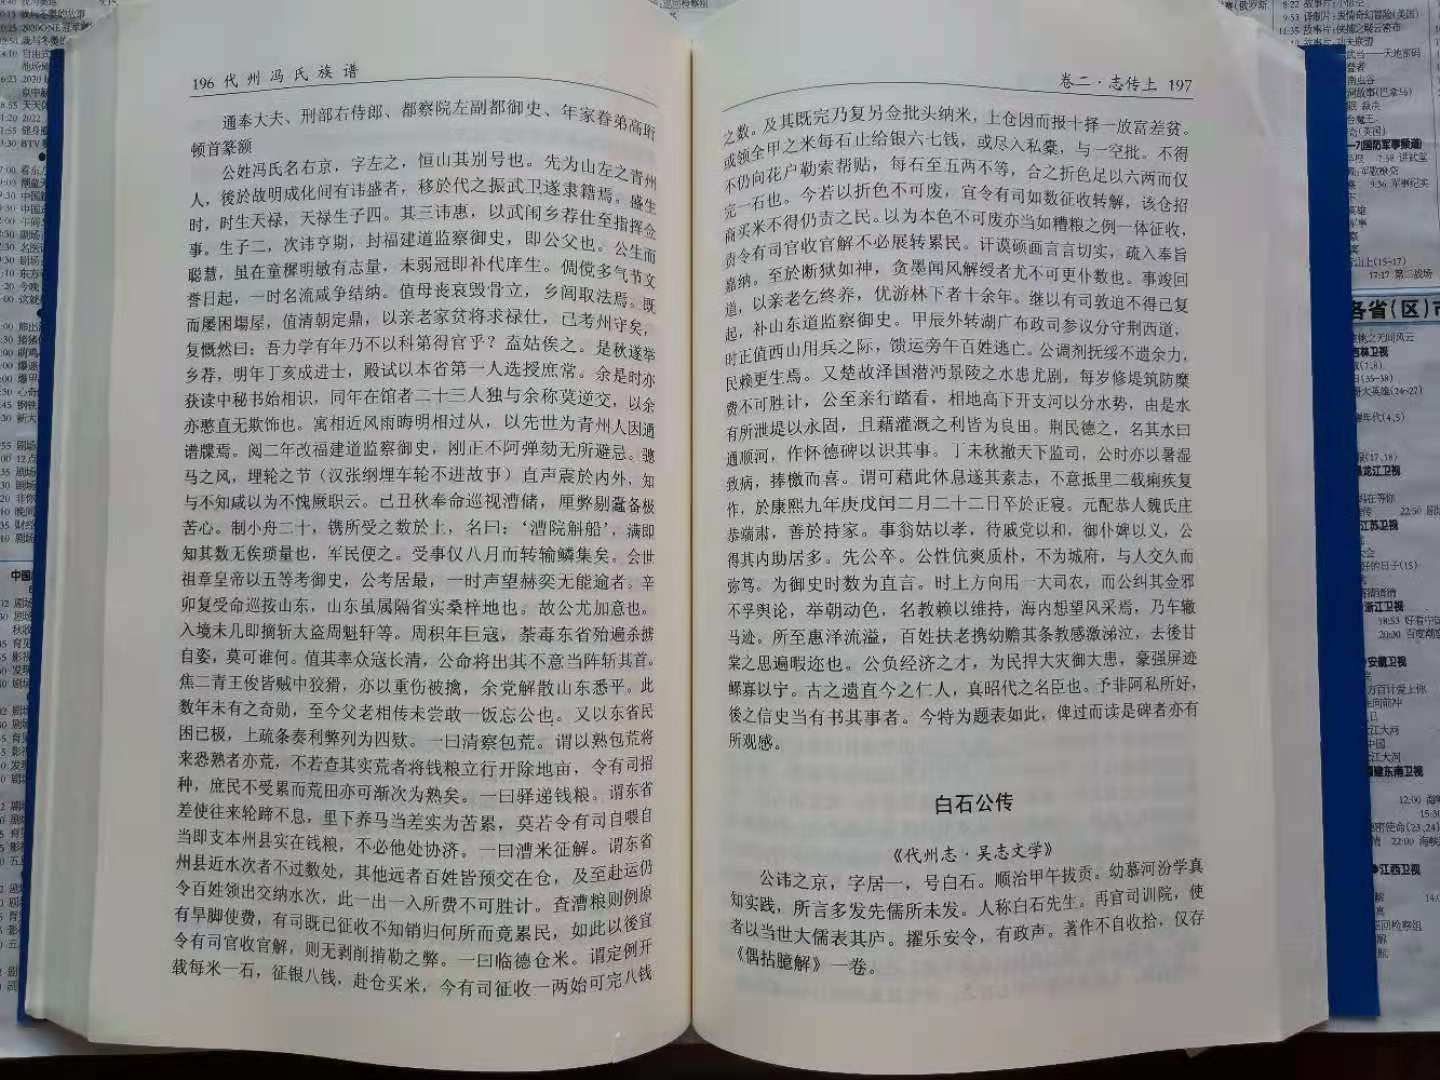 196 代州冯氏族谱
通奉大夫、刑部右侍郎、都察院左副都御史、年家眷弟高珩
顿首篆额
公姓冯氏名右京，字左之，恒山其别号也。先为山左之青州
人，後於故明成化间有讳盛者，移於代之振武卫遂隶籍焉。盛生
时，时生天禄，天禄生子四。其三讳惠，以武闱乡荐仕至指挥佥
事。生子二，次讳亨期，封福建道监察御史，即公父也。公生而
聪慧，虽在童穉明敏有志量，未弱冠即补代庠生。倜傥多气节文
誉日起，一时名流咸争结纳。值母丧哀毁骨立，乡闾取法焉。既
而屡困塲屋，值清朝定鼎，以亲老家贫将求禄仕，已考州守矣，
复慨然曰：吾力学有年乃不以科第得官乎？盍姑俟之。是秋遂举
乡荐，明年丁亥成进士，殿试以本省第一人选授庶常。余是时亦
获读中秘书始相识，同年在馆者二十三人独与余称莫逆交，以余
亦憨直无欺饰也。寓相近风雨晦明相过从，以先世为青州人因通
谱牒焉。阅二年改福建道监察御史，刚正不阿弹劾无所避忌。骢
马之风，埋轮之节（汉张纲埋车轮不进故事）直声震於内外，知
与不知咸以为不愧厥职云。己丑秋奉命巡视漕储，厘弊剔蠧备极
苦心。制小舟二十，镌所受之数於上，名曰：‘漕院斛船’，满即
知其数无俟琐量也，军民便之。受事仅八月而转输鳞集矣。会世
祖章皇帝以五等考御史，公考居最，一时声望赫奕无能逾者。辛
卯复受命巡按山东，山东虽属隔省实桑梓地也。故公尤加意也。
入境未几即摘斩大盗周魁轩等。周积年巨寇，荼毒东省殆遍杀掳
自恣，莫可谁何。值其率众寇长清，公命将出其不意当阵斩其首。
焦二青王俊皆贼中狡猾，亦以重伤被擒，余党解散山东悉平。此
数年未有之奇勋，至今父老相传未尝敢一饭忘公也。又以东省民
困已极，上疏条奏利弊列为四欵。一曰清察包荒。谓以熟包荒将
来恐熟者亦荒，不若查其实荒者将钱粮立行开除地亩，令有司招
种，庶民不受累而荒田亦可渐次为熟矣。一曰驿递钱粮。谓东省
差使往来轮蹄不息，里下养马当差实为苦累，莫若令有司自喂自
当即支本州县实在钱粮，不必他处协济。一曰漕米征解。谓东省
州县近水次者不过数处，其他远者百姓皆预交在仓，及至赴运仍
令百姓领出交纳水次，此一出一入所费不可胜计。查漕粮则例原
有旱脚使费，有司既已征收不知销归何所而竟累民，如此以後宜
令有司官收官解，则无剥削掯勒之弊。一曰临德仓米。谓定例开
载每米一石，征银八钱，赴仓买米，今有司征收一两始可完八钱
卷二·志传上 197
之数。及其既完乃复另佥批头纳米，上仓因而报十择一放富差贫。
或领全甲之米每石止给银六七钱，或尽入私橐，与一空批。不得
不仍向花户勒索帮贴，每石至五两不等，合之折色足以六两而仅
完一石也。今若以折色不可废，宜令有司如数征收转解，该仓招
商买米不得仍责之民。以为本色不可废亦当如糟粮之例一体征收，
责令有司官收官解不必展转累民。讦谟硕画言言切实，疏入奉旨
嘉纳。至於断狱如神，贪墨闻风解绶者尤不可更仆数也。事竣回
道，以亲老乞终养，优游林下者十余年。继以有司敦迫不得已复
起，补山东道监察御史。甲辰外转湖广布政司参议分守荆西道，
时正值西山用兵之际，馈运旁午百姓逃亡。公调剂抚绥不遗余力，
民赖更生焉。又楚故泽国潜沔景陵之水患尤剧，每岁修堤筑防糜
费不可胜计，公至亲行踏看，相地高下开支河以分水势，由是水
有所泄堤以永固，且藉灌溉之利皆为良田。荆民德之，名其水曰
通顺河，作怀德碑以识其事。丁未秋撤天下监司，公时亦以暑湿
致病，捧檄而喜。谓可藉此休息遂其素志，不意抵里二载痢疾复
作，於康熙九年庚戊闰二月二十二日卒於正寝。元配恭人魏氏庄
恭端肃，善於持家。事翁姑以孝，待戚党以和，御仆婢以义，公
得其内助居多。先公卒。公性伉爽质朴，不为城府，与人交久而
弥笃。为御史时数为直言。时上方向用一大司农，而公纠其金邪
不乎舆论，举朝动色，名教赖以维持，海内想望风采焉，乃车辙
马迹。所至惠泽流溢，百姓扶老携幼赡其条教感激涕泣，去後甘
棠之思遍暇迩也。公负经济之才，为民捍大灾御大患，豪强屏迹
鳏寡以宁。古之遗直今之仁人，真昭代之名臣也。予非阿私所好，
後之信史当有书其事者。今特为题表如此，俾过而读是碑者亦有
所观感。
白石公传
《代州志·吴志文学》
公讳之京，字居一，号白石。顺治甲午拔贡。幼慕河汾学真
知实践，所言多发先儒所未发。人称白石先生。再官司训院，使
者以当世大儒表其庐。擢乐安令，有政声。著作不自收拾，仅存
《偶拈臆解》一卷。